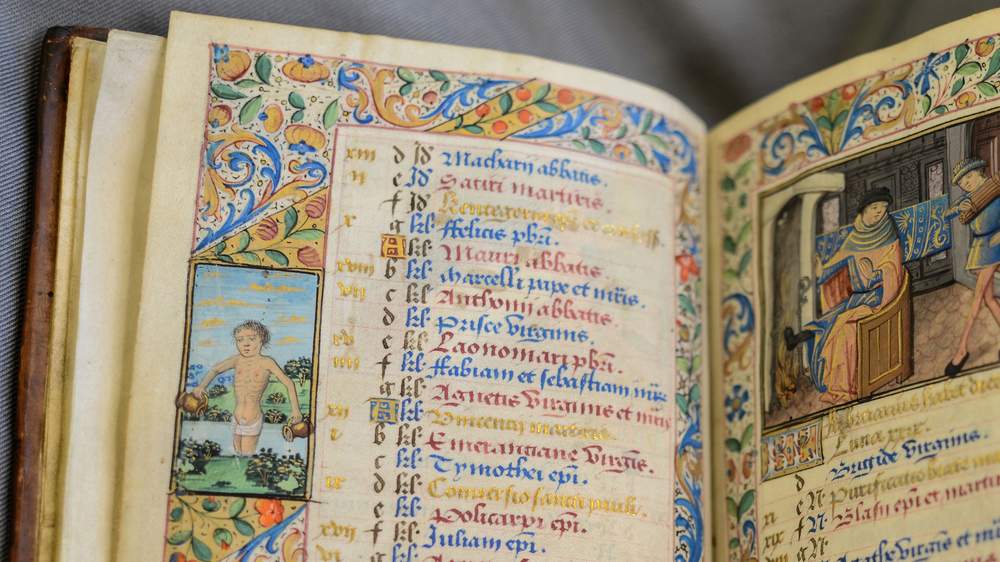 xiii d Id Macharii abbatis.
ii e Id Satiri martiris.
f Id
x g kl ffelicis pbri.
A kl Mauri abbatis.
xviii b kl Marcelli pape et mris.
vii c kl Anthonii abbatis.
d kl Prisce virginis.
xv e kl Laonomari pbri.
iiii f kl ffabiani et sebastiani
g kl Agnetis virginis et
xii A kl Vincentii martiris.
i b kl Emerantiane virgis.
c kl Tymothei epi.
ix d kl Conversio sancti pauli.
e kl Policarpi epi.
xvii f kl Juliani epi.
vi g kl
Februarius habet dies
Luna xxix.
d Brigide virginis.
xi e N Purificatio beate
xix f N Blasii epi et martiris
viii g N
Agathe virginis et